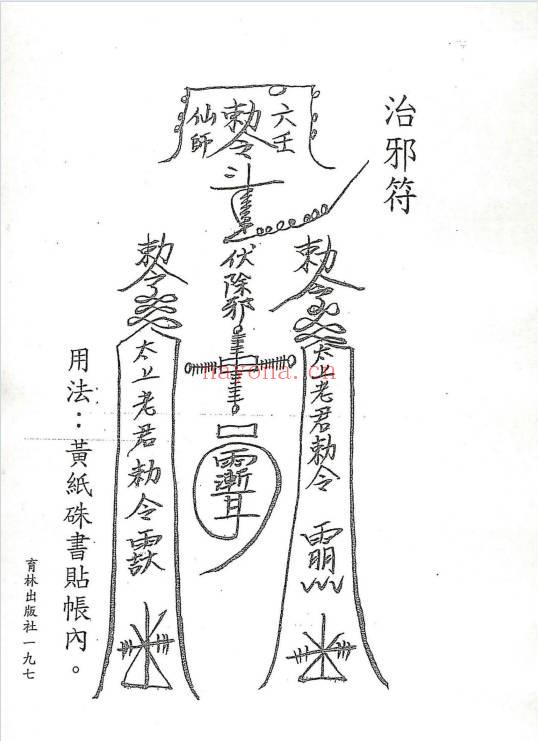 治邪符
六壬
勅令
仙師
斗
伏除邪
勅令
太上老君勅令
勅令
太上老君勅令
用法：黃紙硃書貼帳內。
育林出版社一九七
nayona.cn